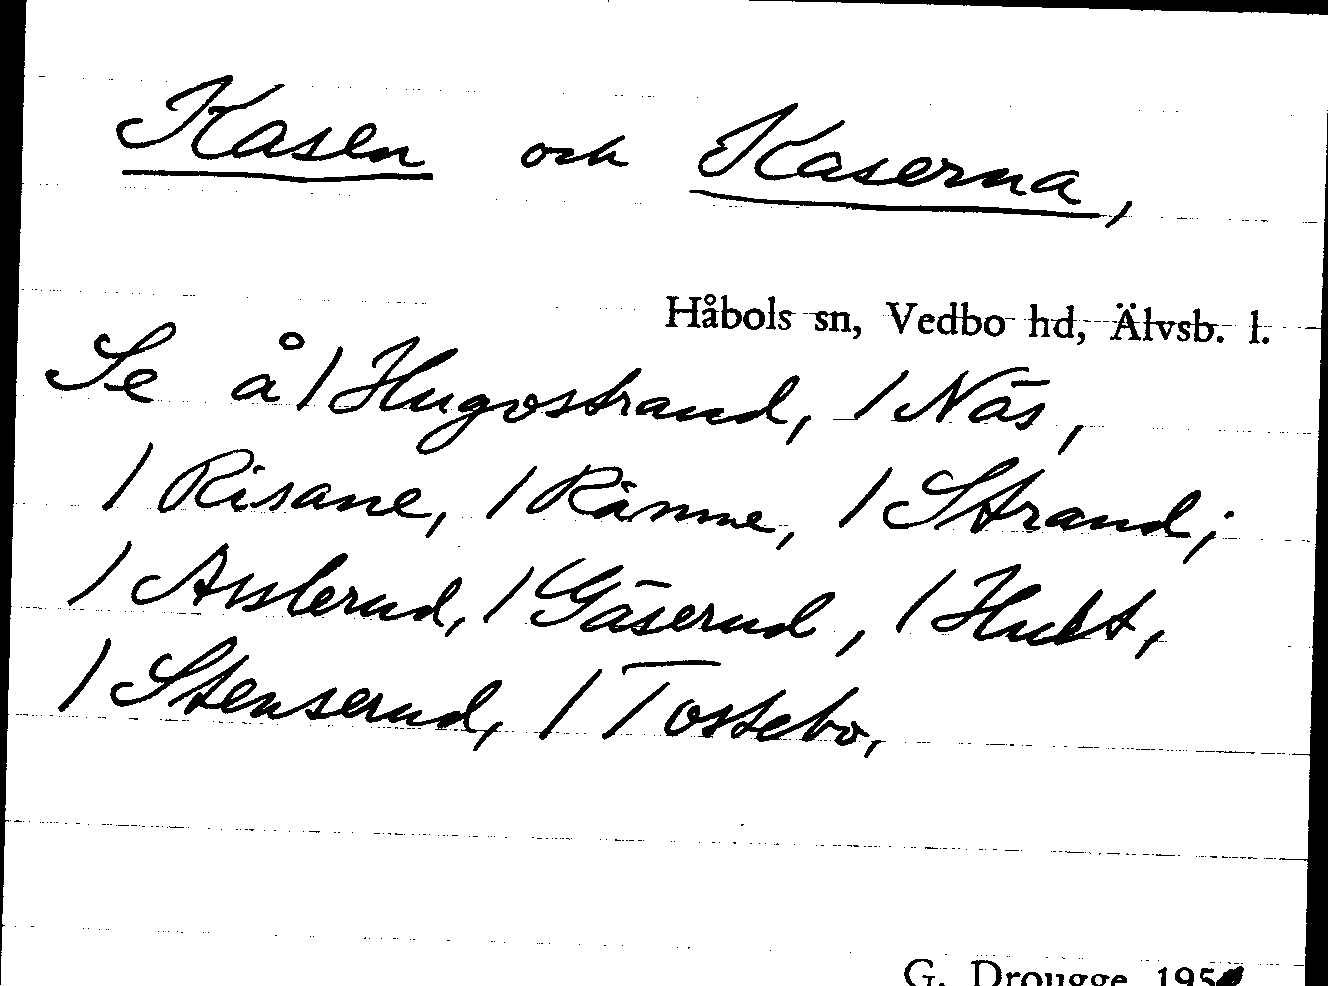 Kasen och Kaserna,
Håbols sn, Vedbo hd, Älvsb. l.
Se å/Hugostrand, /Näs,
/Risane, /Ränne, /Strand;
/Asslerud, /Gäserud, /Hult,
/Stenserud, /Tostebo,
G. Drougge 195